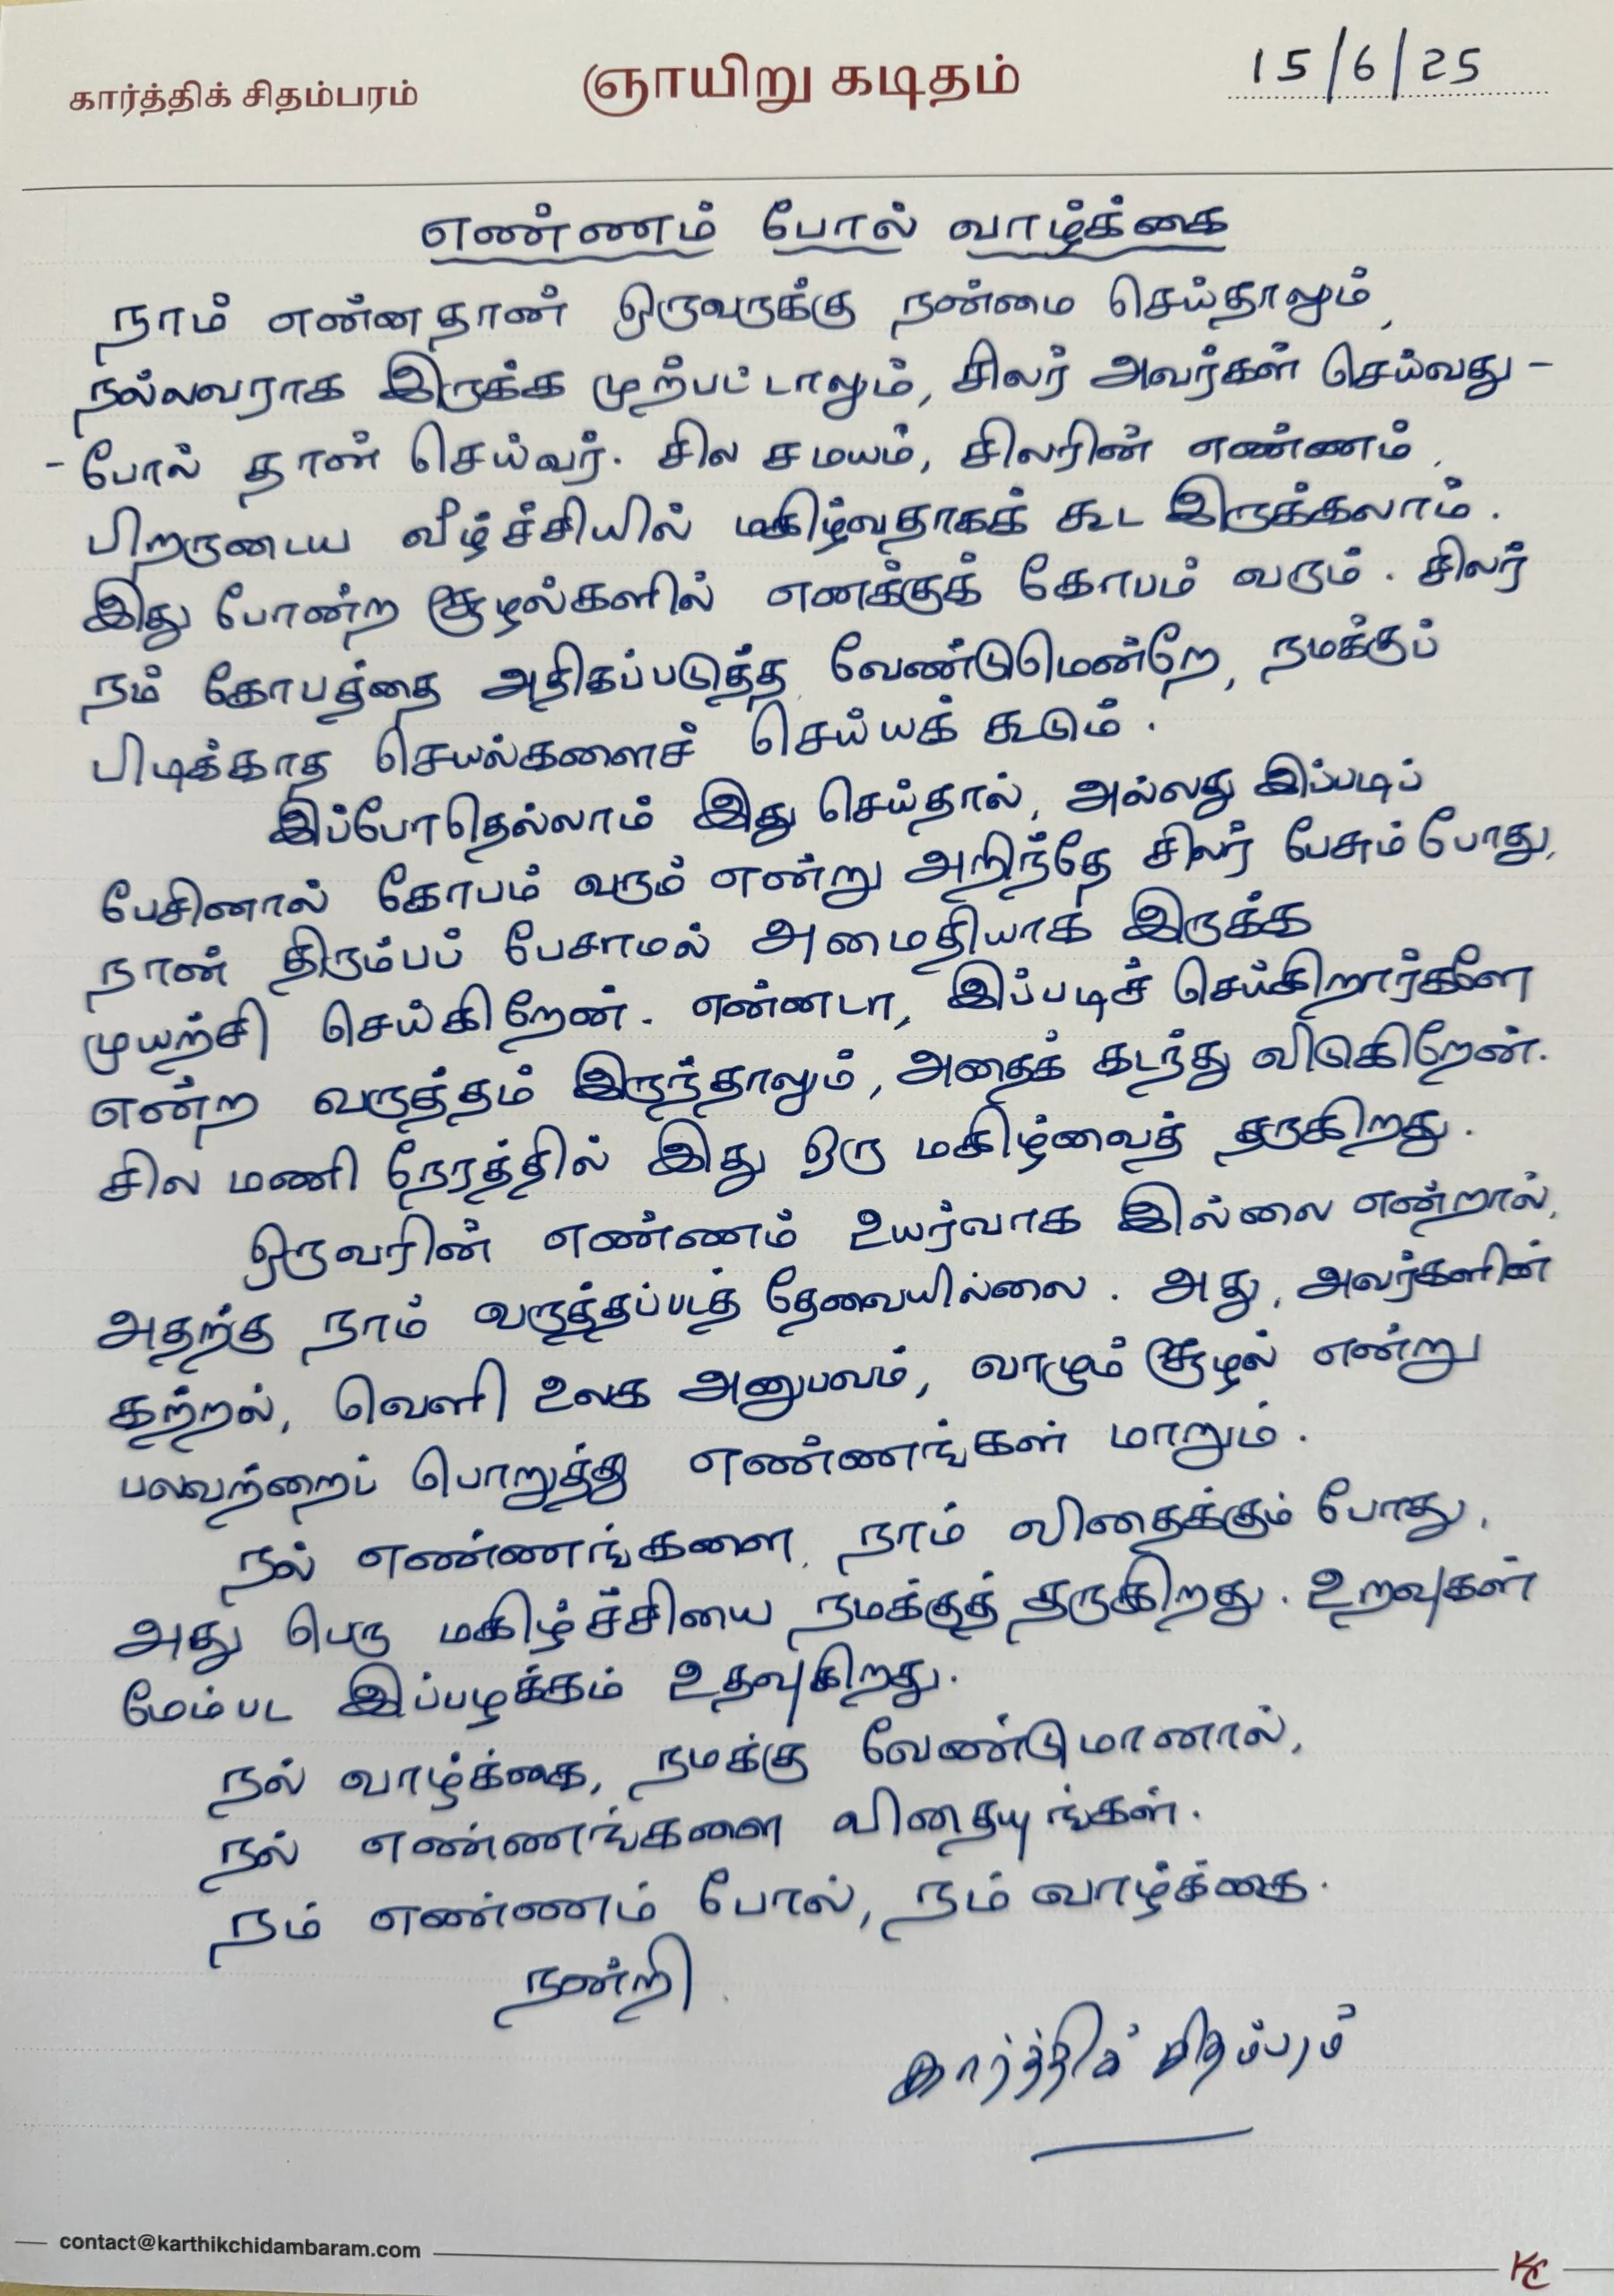 கார்த்திக் சிதம்பரம்
ஞாயிறு கடிதம்
15/6/25
எண்ணம் போல் வாழ்க்கை
நாம் என்னதான் ஒருவருக்கு நன்மை செய்தாலும்,
நல்லவராக இருக்க முற்பட்டாலும், சிலர் அவர்கள் செய்வது -
- போல் தான் செய்வர். சில சமயம், சிலரின் எண்ணம்,
பிறருடைய வீழ்ச்சியில் மகிழ்வதாகக் கூட இருக்கலாம்.
இது போன்ற சூழல்களில் எனக்குக் கோபம் வரும். சிலர்
நம் கோபத்தை அதிகப்படுத்த வேண்டுமென்றே, நமக்குப்
பிடிக்காத செயல்களைச் செய்யக் கூடும்.
இப்போதெல்லாம் இது செய்தால், அல்லது இப்படிப்
பேசினால் கோபம் வரும் என்று அறிந்தே சிலர் பேசும்போது,
நான் திரும்பப் பேசாமல் அமைதியாக இருக்க
முயற்சி செய்கிறேன். என்னடா, இப்படிச் செய்கிறார்களே
என்ற வருத்தம் இருந்தாலும், அதைக் கடந்து விடுகிறேன்.
சில மணி நேரத்தில் இது ஒரு மகிழ்வைத் தருகிறது.
ஒருவரின் எண்ணம் உயர்வாக இல்லை என்றால்,
அதற்கு நாம் வருத்தப்படத் தேவையில்லை. அது, அவர்களின்
கற்றல், வெளி உலக அனுபவம், வாழும் சூழல் என்று
பலவற்றைப் பொறுத்து எண்ணங்கள் மாறும்.
நல் எண்ணங்களை, நாம் விதைக்கும் போது,
அது பெரு மகிழ்ச்சியை நமக்குத் தருகிறது. உறவுகள்
மேம்பட இப்பழக்கம் உதவுகிறது.
நல் வாழ்க்கை, நமக்கு வேண்டுமானால்,
நல் எண்ணங்களை விதையுங்கள்.
நம் எண்ணம் போல், நம் வாழ்க்கை.
நன்றி.
கார்த்திக் சிதம்பரம்
contact@karthikchidambaram.com
KC